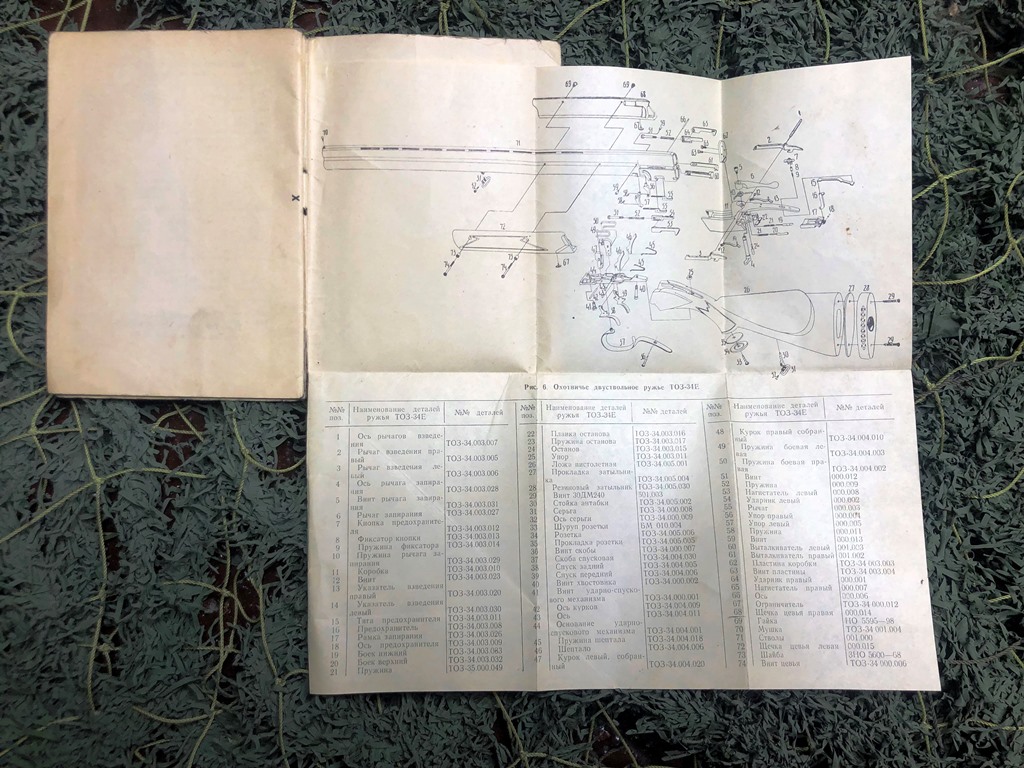 Рис. 6. Охотничье двуствольное ружье ТОЗ-34Е
№№ поз.
Наименование деталей ружья ТОЗ-34Е
№№ деталей
1 Ось рычагов взведения ТОЗ-34.003.007
2 Рычаг взведения правый ТОЗ-34.003.005
3 Рычаг взведения левый ТОЗ-34.003.006
4 Ось рычага запирания ТОЗ-34.003.028
5 Винт рычага запирания ТОЗ-34.003.031
6 Рычаг запирания ТОЗ-34.003.027
7 Кнопка предохранителя ТОЗ-34.003.012
8 Фиксатор кнопки ТОЗ-34.003.013
9 Пружина фиксатора ТОЗ-34.003.014
10 Пружина рычага запирания ТОЗ-34.003.029
11 Коробка ТОЗ-34.003.010
12 Винт ТОЗ-34.003.023
13 Указатель взведения правый ТОЗ-34.003.020
14 Указатель взведения левый ТОЗ-34.003.030
15 Тяга предохранителя ТОЗ-34.003.011
16 Предохранитель ТОЗ-34.003.008
17 Рамка запирания ТОЗ-34.003.026
18 Ось предохранителя ТОЗ-34.003.009
19 Боек нижний ТОЗ-34.003.083
20 Боек верхний ТОЗ-34.003.032
21 Пружина ТОЗ-35.000.049
№№ поз.
Наименование деталей ружья ТОЗ-34Е
№№ деталей
22 Планка останова ТОЗ-34.003.016
23 Пружина останова ТОЗ-34.003.017
24 Останов ТОЗ-34.003.015
25 Упор ТОЗ-34.003.014
26 Ложа пистолетная ТОЗ-34.005.001
27 Прокладка затыльника ТОЗ-34.005.004
28 Резиновый затыльник ТОЗ-34.005.030
29 Винт 30ДМ240 501.003
30 Стойка антабки ТОЗ-34.005.002
31 Серьга ТОЗ-34.000.008
32 Ось серьги ТОЗ-34.000.009
33 Шуруп розетки БМ 010.004
34 Розетка ТОЗ-34.005.006
35 Прокладка розетки ТОЗ-34.005.005
36 Винт скобы ТОЗ-34.000.007
37 Скоба спусковая ТОЗ-34.004.030
38 Спуск задний ТОЗ-34.004.005
39 Спуск передний ТОЗ-34.004.006
40 Винт хвостовика ТОЗ-34.000.002
41 Винт ударно-спускового механизма ТОЗ-34.000.001
42 Ось курков ТОЗ-34.004.009
43 Ось ТОЗ-34.004.011
44 Основание ударно-спускового механизма ТОЗ-34.004.001
45 Пружина шептала ТОЗ-34.004.018
46 Шептало ТОЗ-34.004.006
47 Курок левый, собранный ТОЗ-34.004.020
№№ поз.
Наименование деталей ружья ТОЗ-34Е
№№ деталей
48 Курок правый собранный ТОЗ-34.004.010
49 Пружина боевая левая ТОЗ-34.004.003
50 Пружина боевая правая ТОЗ-34.004.002
51 Винт 000.012
52 Пружина 000.009
53 Нагнетатель левый 000.008
54 Ударник левый 000.002
55 Рычаг 000.003
56 Упор правый 000.004
57 Упор левый 000.005
58 Пружина 000.011
59 Винт 000.013
60 Выталкиватель левый 001.003
61 Выталкиватель правый 001.002
62 Пластина коробки ТОЗ-34.003.003
63 Винт пластины ТОЗ-34.003.004
64 Ударник правый 000.001
65 Нагнетатель правый 000.007
66 Ось 020.006
67 Ограничитель ТОЗ-34.000.012
68 Щечка цевья правая 000.014
69 Гайка НО 5595—98
70 Мушка ТОЗ-34.001.004
71 Стволы 001.000
72 Щечка цевья левая 000.015
73 Шайба ЗНО 5600—68
74 Винт цевья ТОЗ-34.000.006